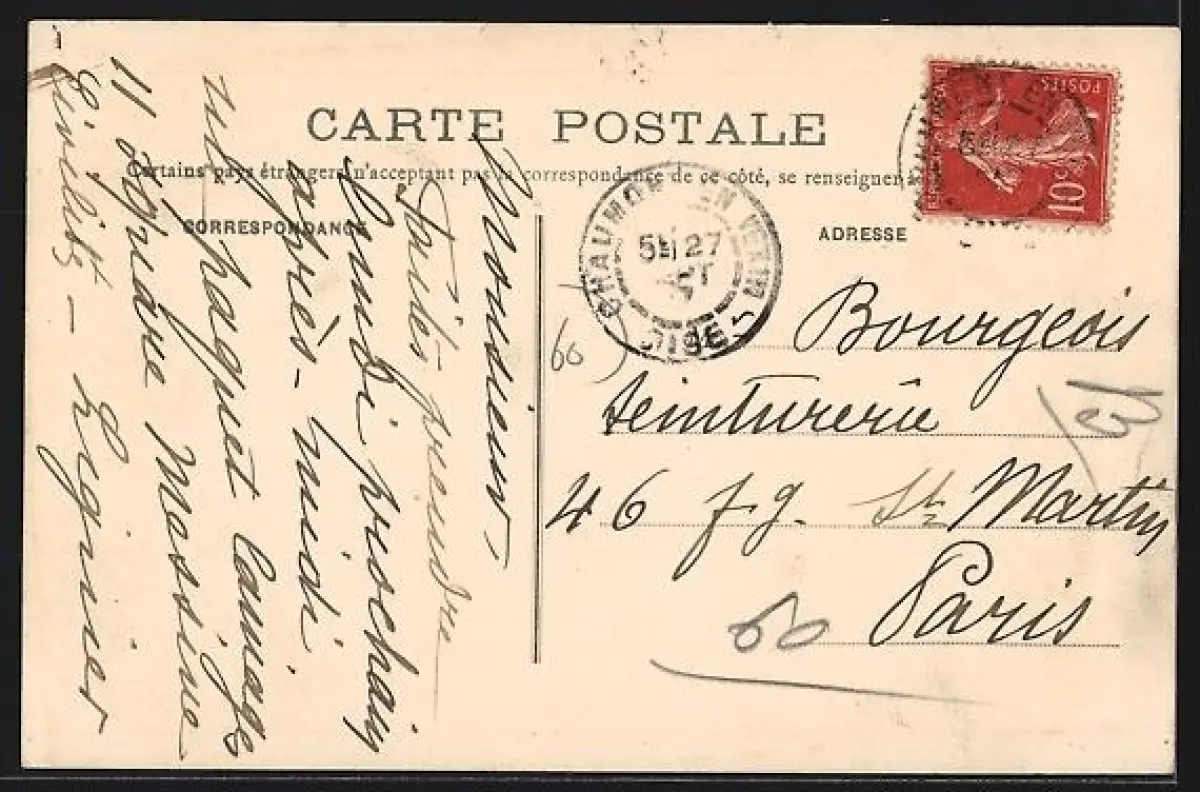 CARTE POSTALE
Certains pays étrangers n'acceptant pas la correspondance de ce côté, se renseigner à
CORRESPONDANCE
ADRESSE
POSTES
10c
CHAUMONT EN VEXIN
5E 27
OISE
Monsieur
Faites prendre
Lundi prochain
après-midi
un paquet Lainage
11 Avenue Messine
Bourgeois
teinturerie
46 fg. St Martin
Paris
60
60